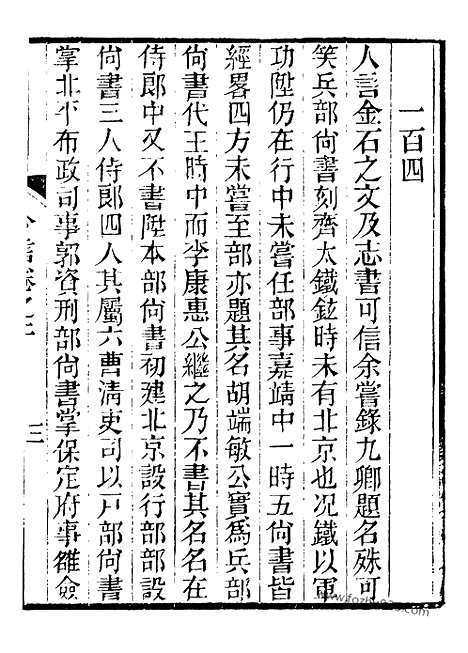 一百四
人言金石之文及志書可信余嘗錄九卿題名殊可
笑兵部尚書刻齊太鐵鉉時未有北京也况鐵以軍
功陞仍在行中未嘗任部事嘉靖中一時五尚書皆
經畧四方未嘗至部亦題其名胡端敏公實爲兵部
尚書代王時中而李康惠公繼之乃不書其名名在
侍郎中又不書陞本部尚書初建北京設行部部設
尚書三人侍郎四人其屬六曹淸吏司以戸部尚書
掌北平布政司事郭資刑部尚書掌保定府事雒僉
今言卷之二
三
www.fozhu920.com